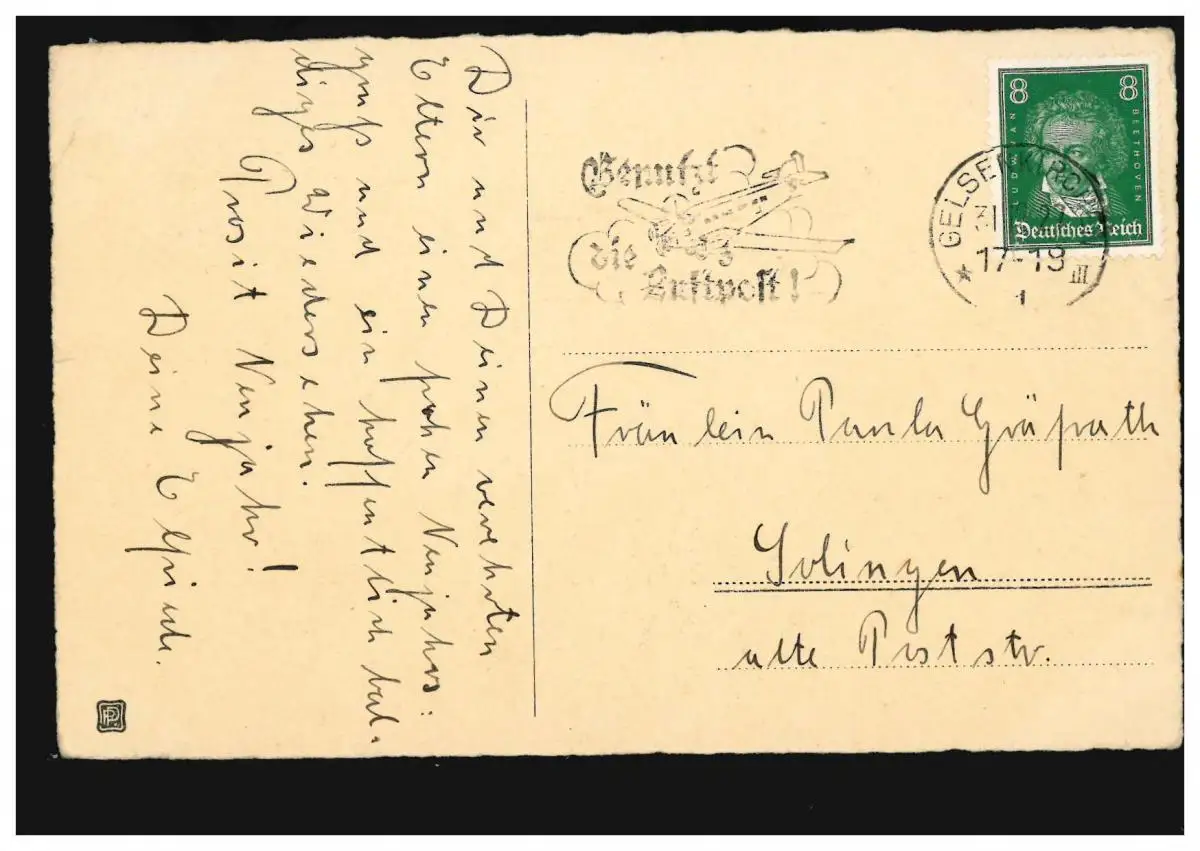 Dir und Deinen verehrten
Eltern einen frohen Neujahrs:
gruß und ein hoffentlich bal-
diges Wiedersehen!
Prosit Neujahr!
Deine Elfriede.
Benutzt
die
Luftpost!
8 8
LUDW. VAN BEETHOVEN
Deutsches Reich
GELSENKIRCHEN
31
17-18 III
* 1
Fräulein Paula Gräfrath
Solingen
alte Poststr.